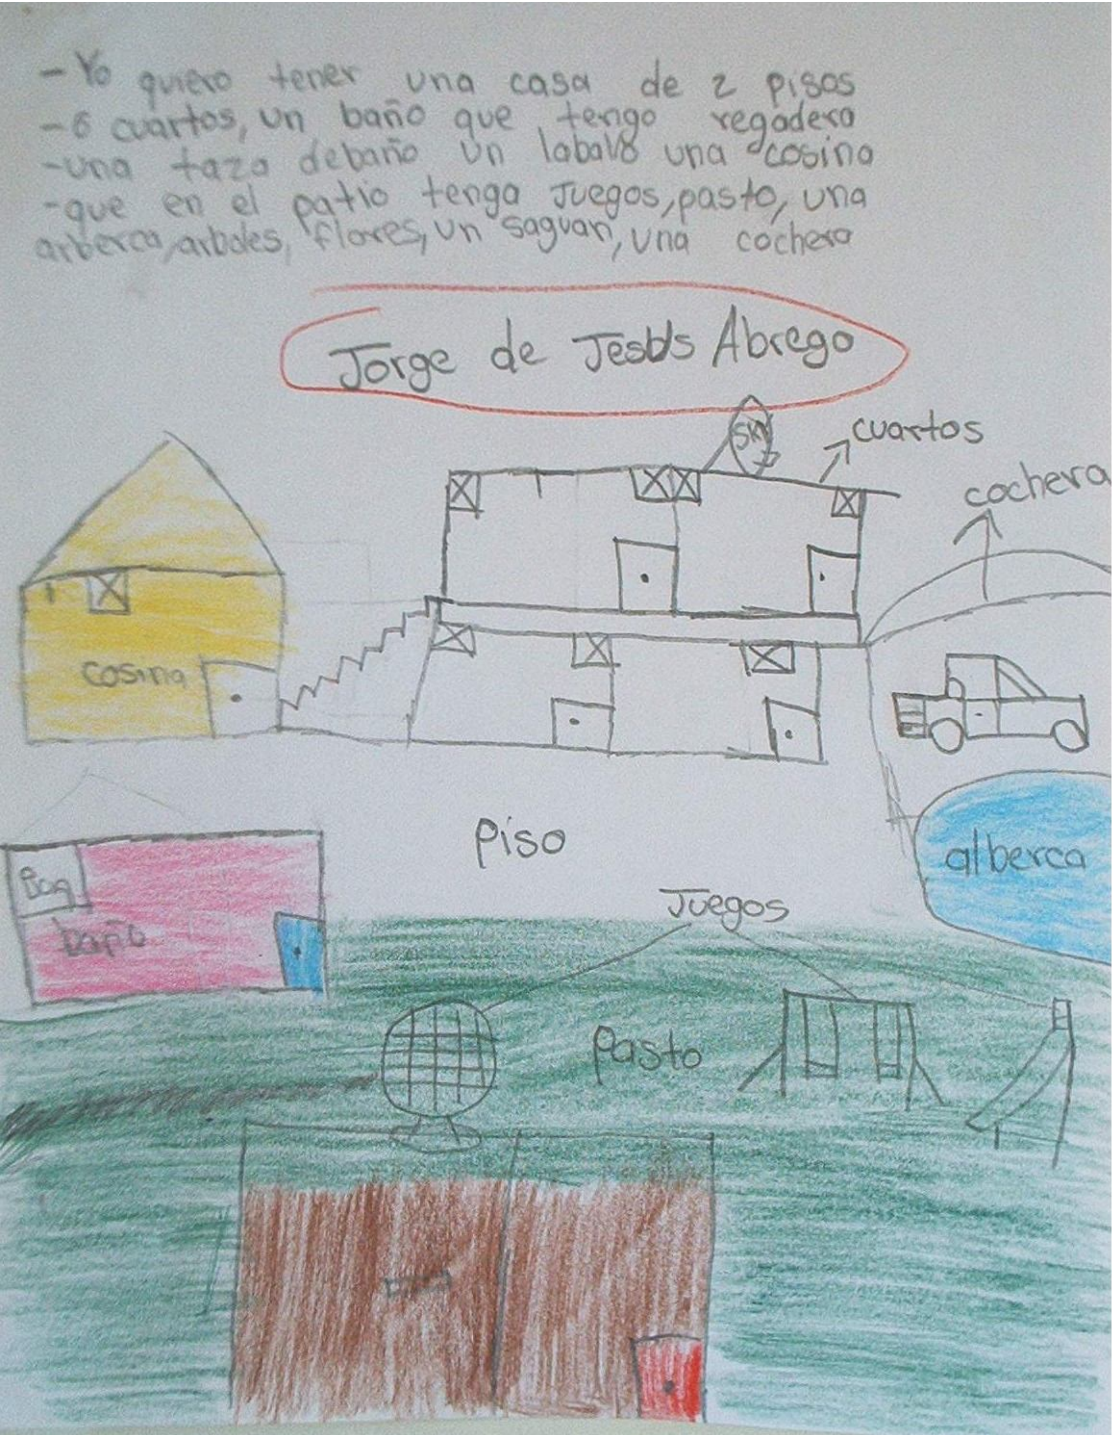 - Yo quiero tener una casa de 2 pisos
- 6 cuartos, un baño que tengo regadera
- una taza debaño un labalo una cosina
- que en el patio tenga Juegos, pasto, una
arberca, arboles, flores, un saguan, una cochera
Jorge de Jesus Abrego
SKY
cuartos
cochera
cosina
piso
alberca
Baq
baño
Juegos
Pasto